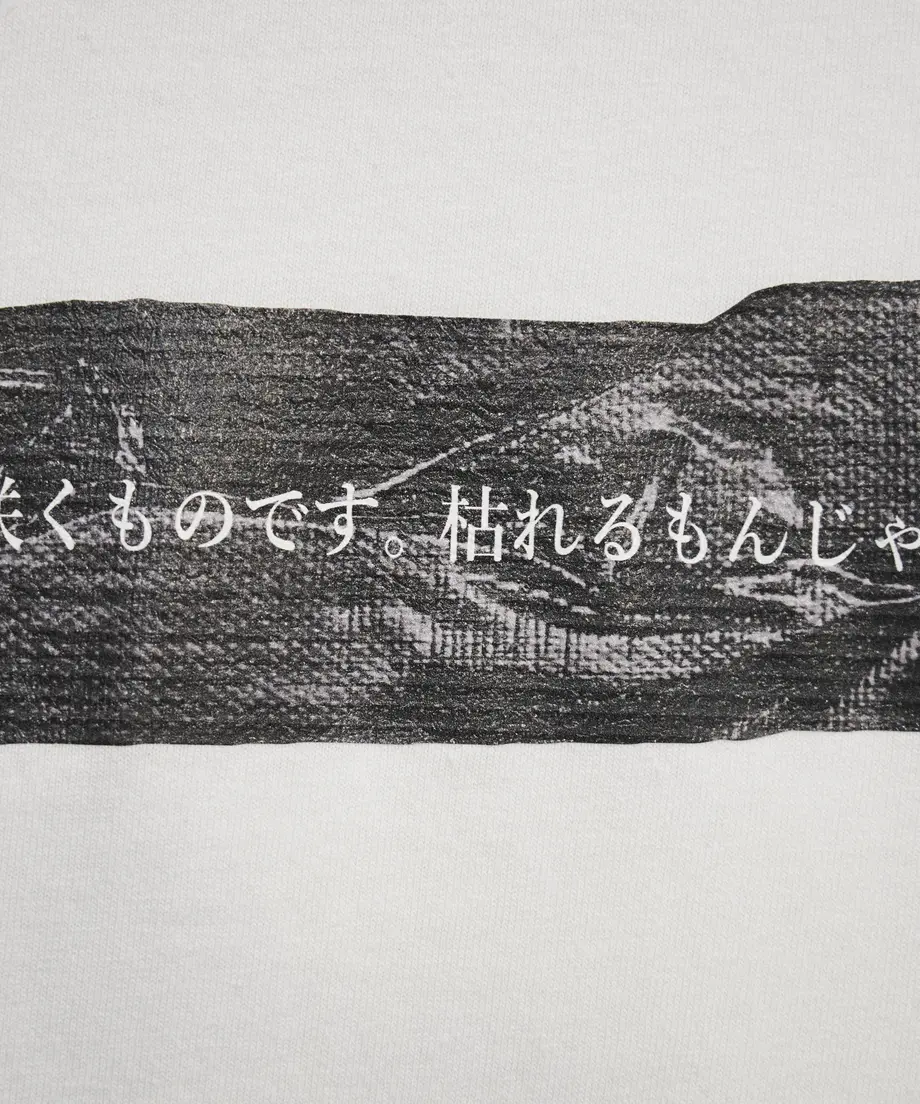 咲くものです。枯れるもんじゃ